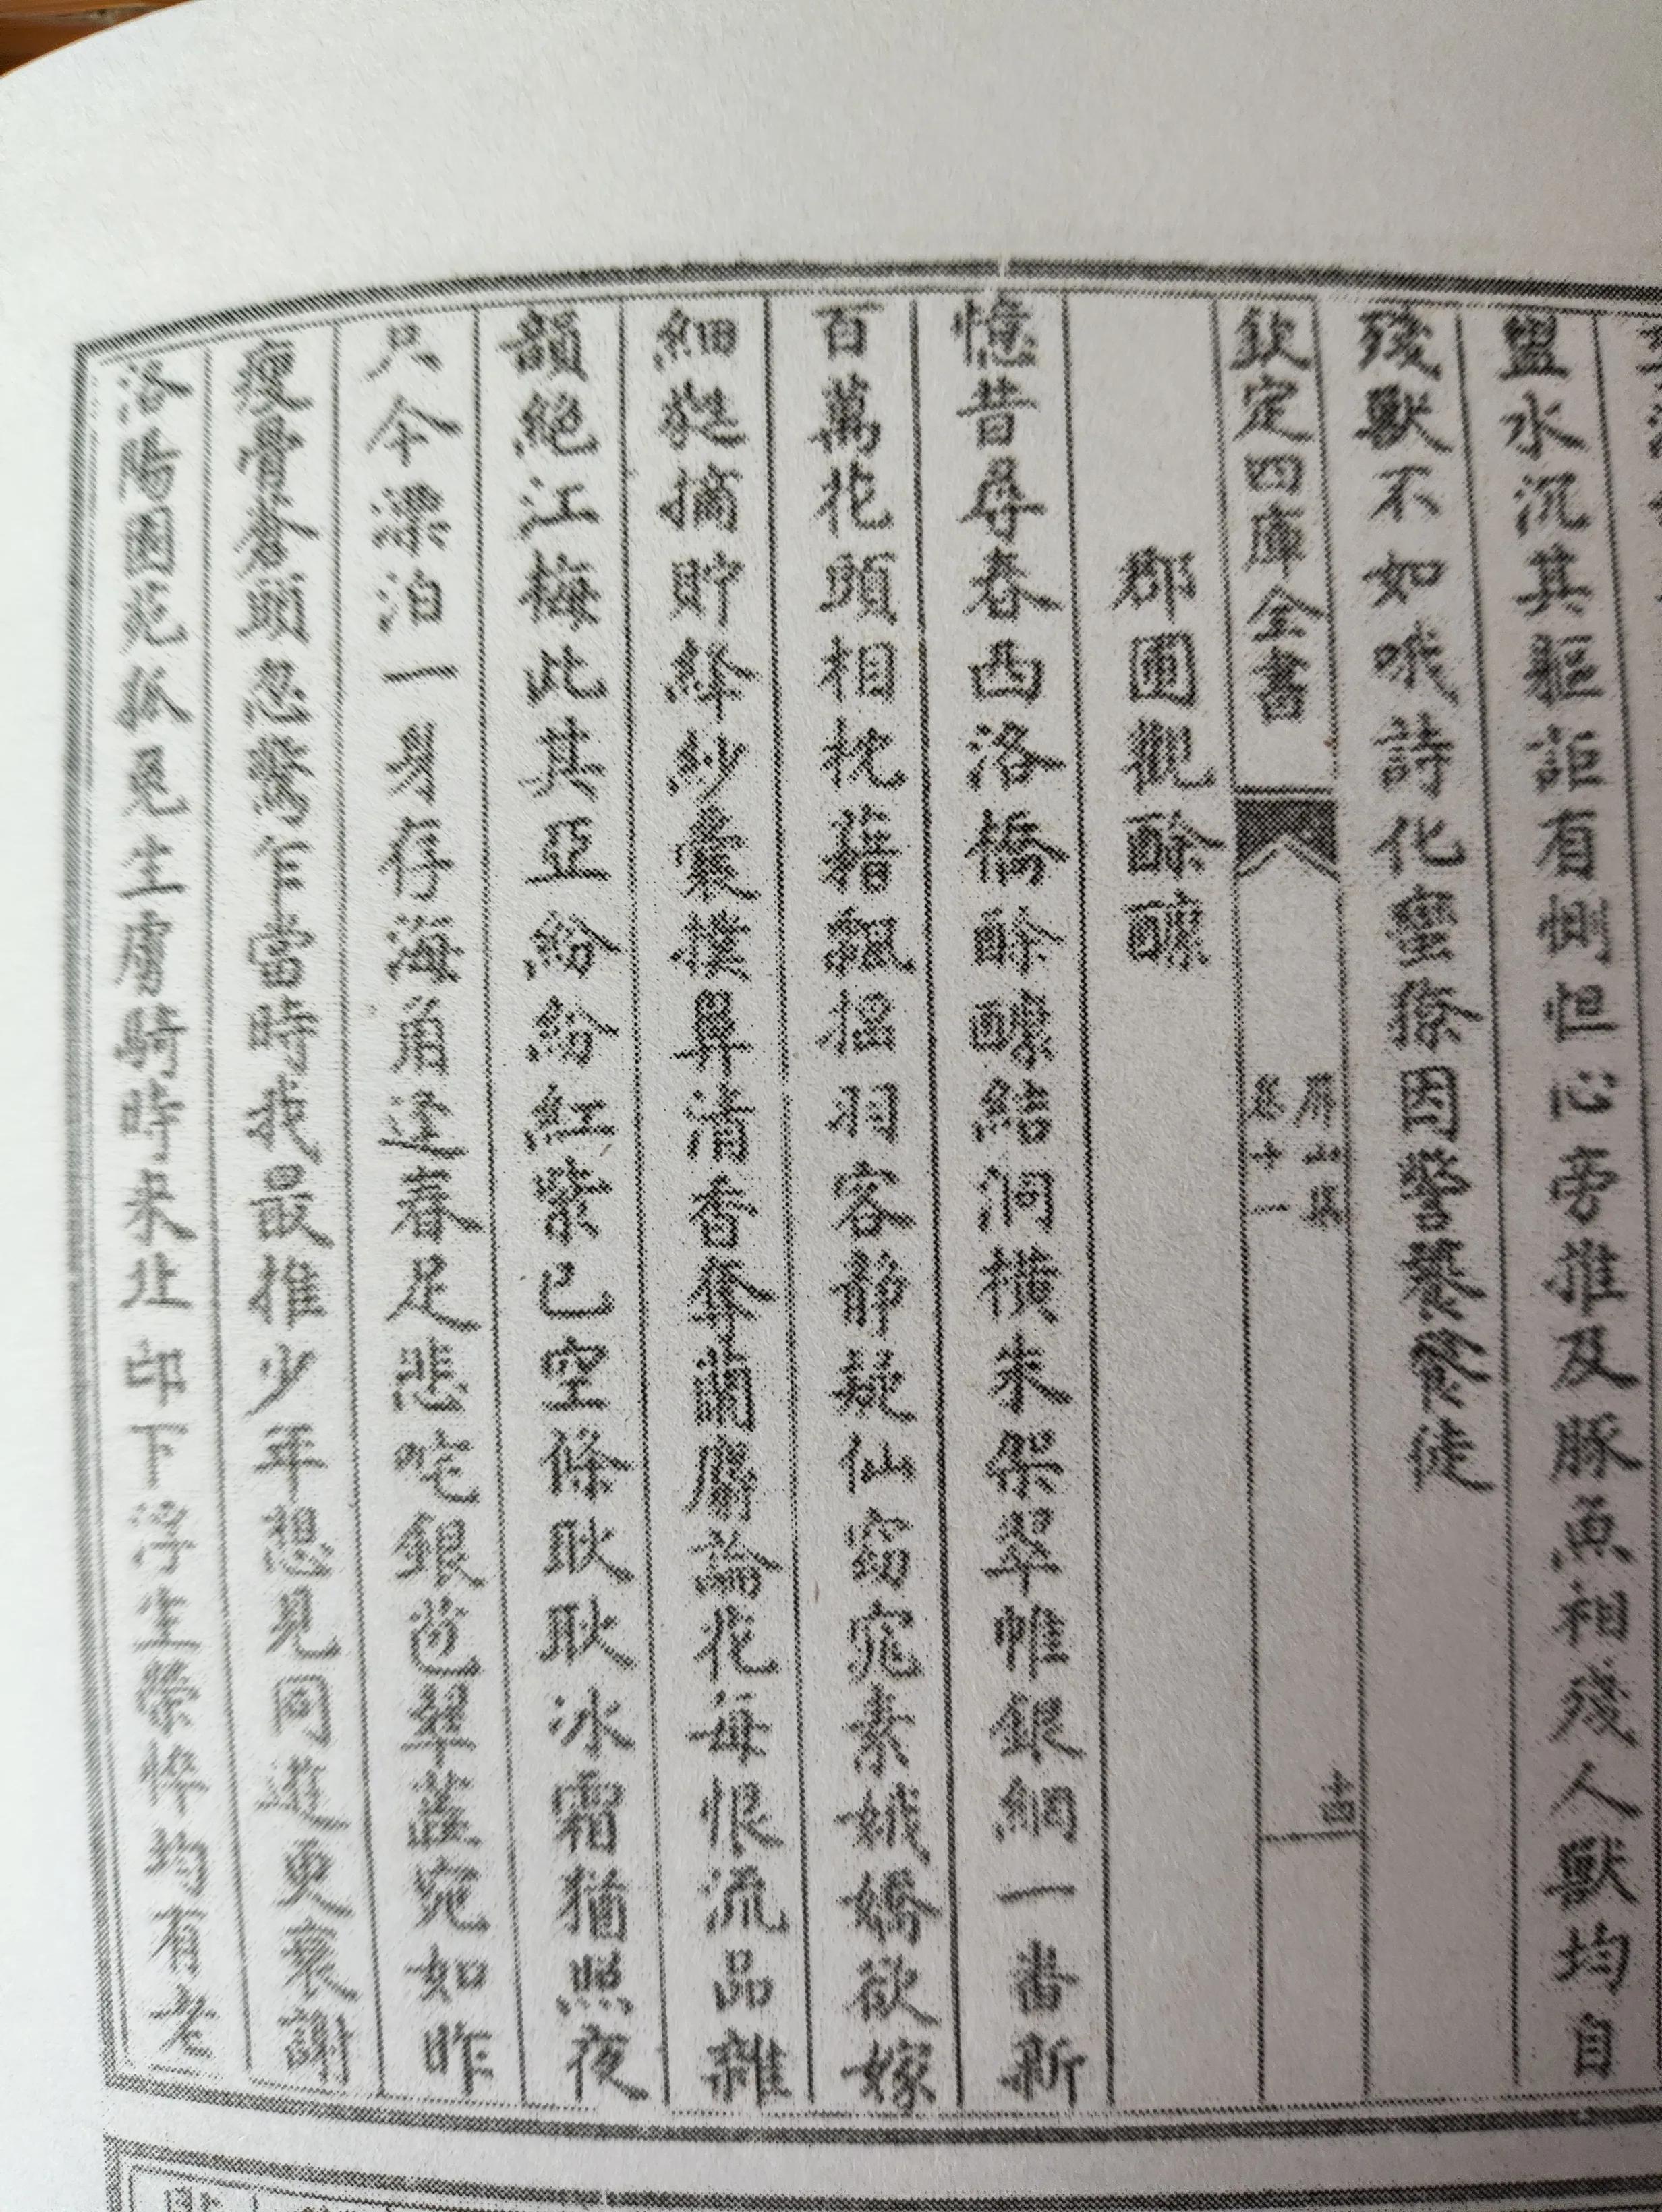 盟水沉其軀詎有惻怛心旁推及豚魚相殘人獸均自
殘獸不如哦詩化蠻獠因警暴食徒
欽定四庫全書
屏山集
卷十一
古
郡圃觀酴醿
憶昔尋春西洛橋酴醿結洞橫朱架翠帷銀綱一畨新
百萬花頭相枕藉飄搖羽客静疑仙窈窕素娥嬌欲嫁
細挻摘貯絳紗囊撲鼻清香奪蘭麝論花每恨流品雜
韻絕江梅此其亞紛紛紅紫已空條耿耿冰霜猶照夜
只今梁泊一身存海角逢春足悲咤銀苞翠蓝宛如昨
瘦骨蒼頭忽驚乍當時我最推少年想見同逰更衰謝
洛陽園花依晃主唐時未止印下浮生榮悴均有老